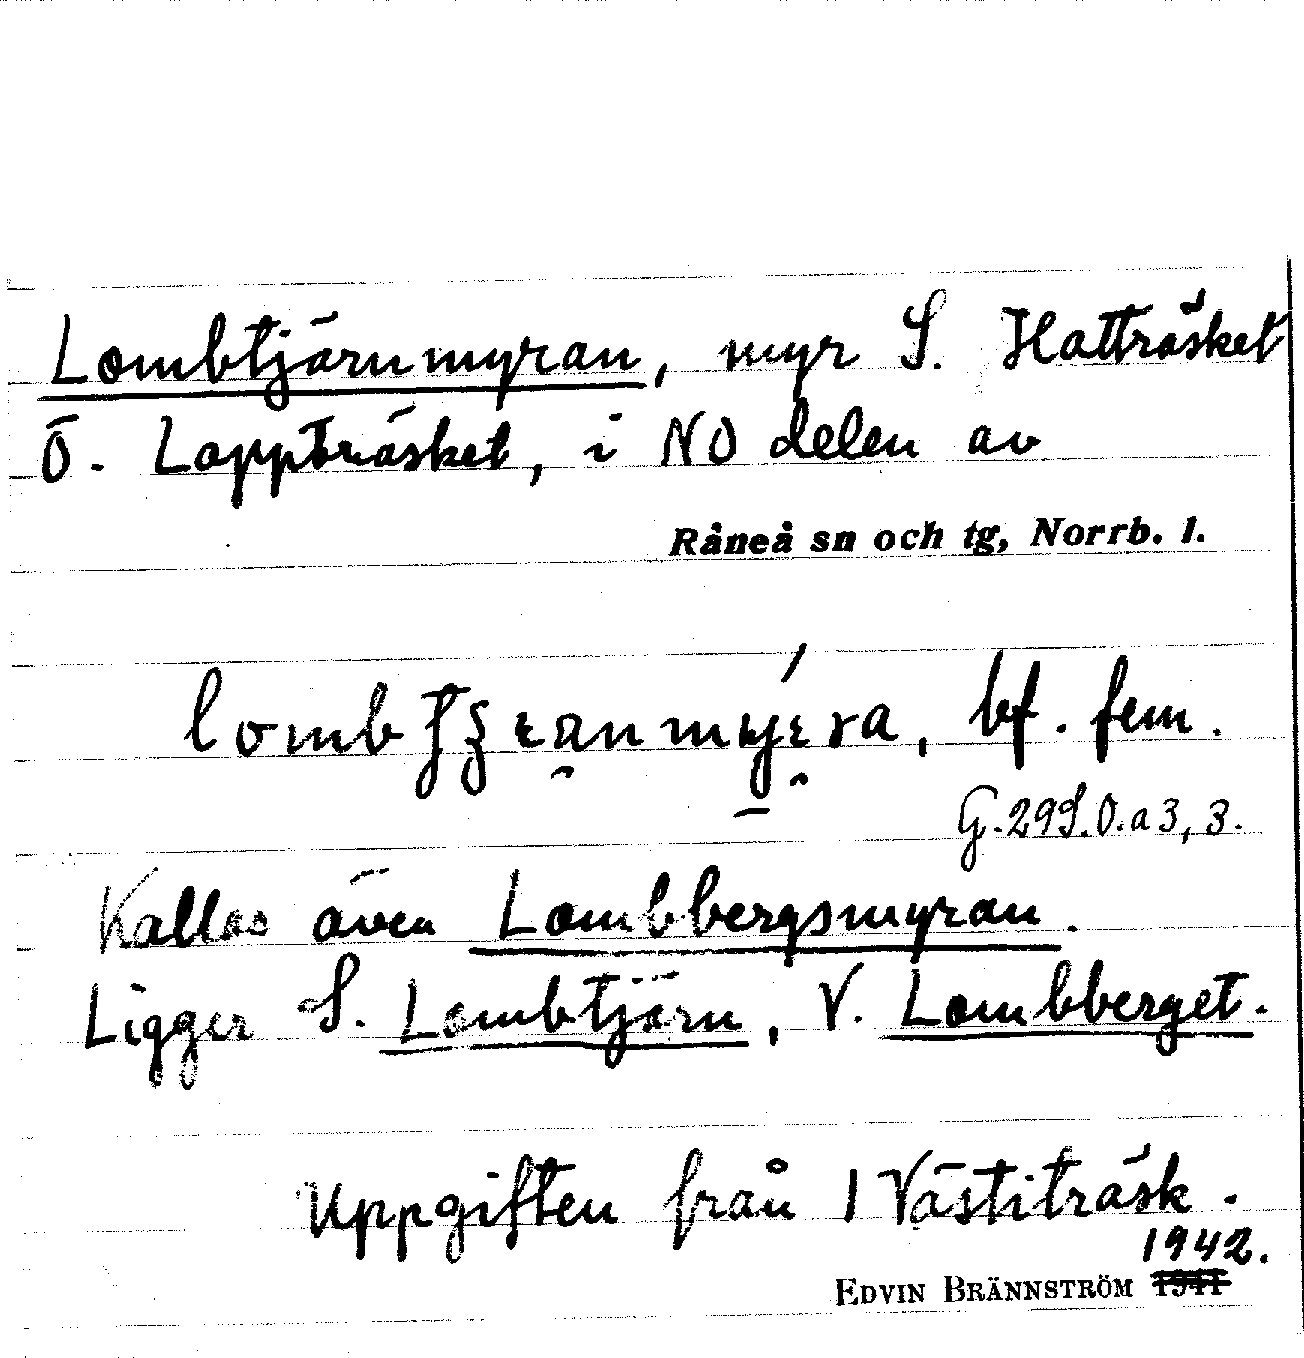 Lombtjärnmyran, myr S. Hatträsket
Ö. Lappträsket, i NO delen av
Råneå sn och tg, Norrb. l.
bf. fem.
G.29S.O.a3,3.
Kallas även Lombbergsmyran.
Ligger S. Lombtjärn, V. Lombberget.
Uppgiften från 1 Västiträsk.
1942.
EDVIN BRÄNNSTRÖM 1941